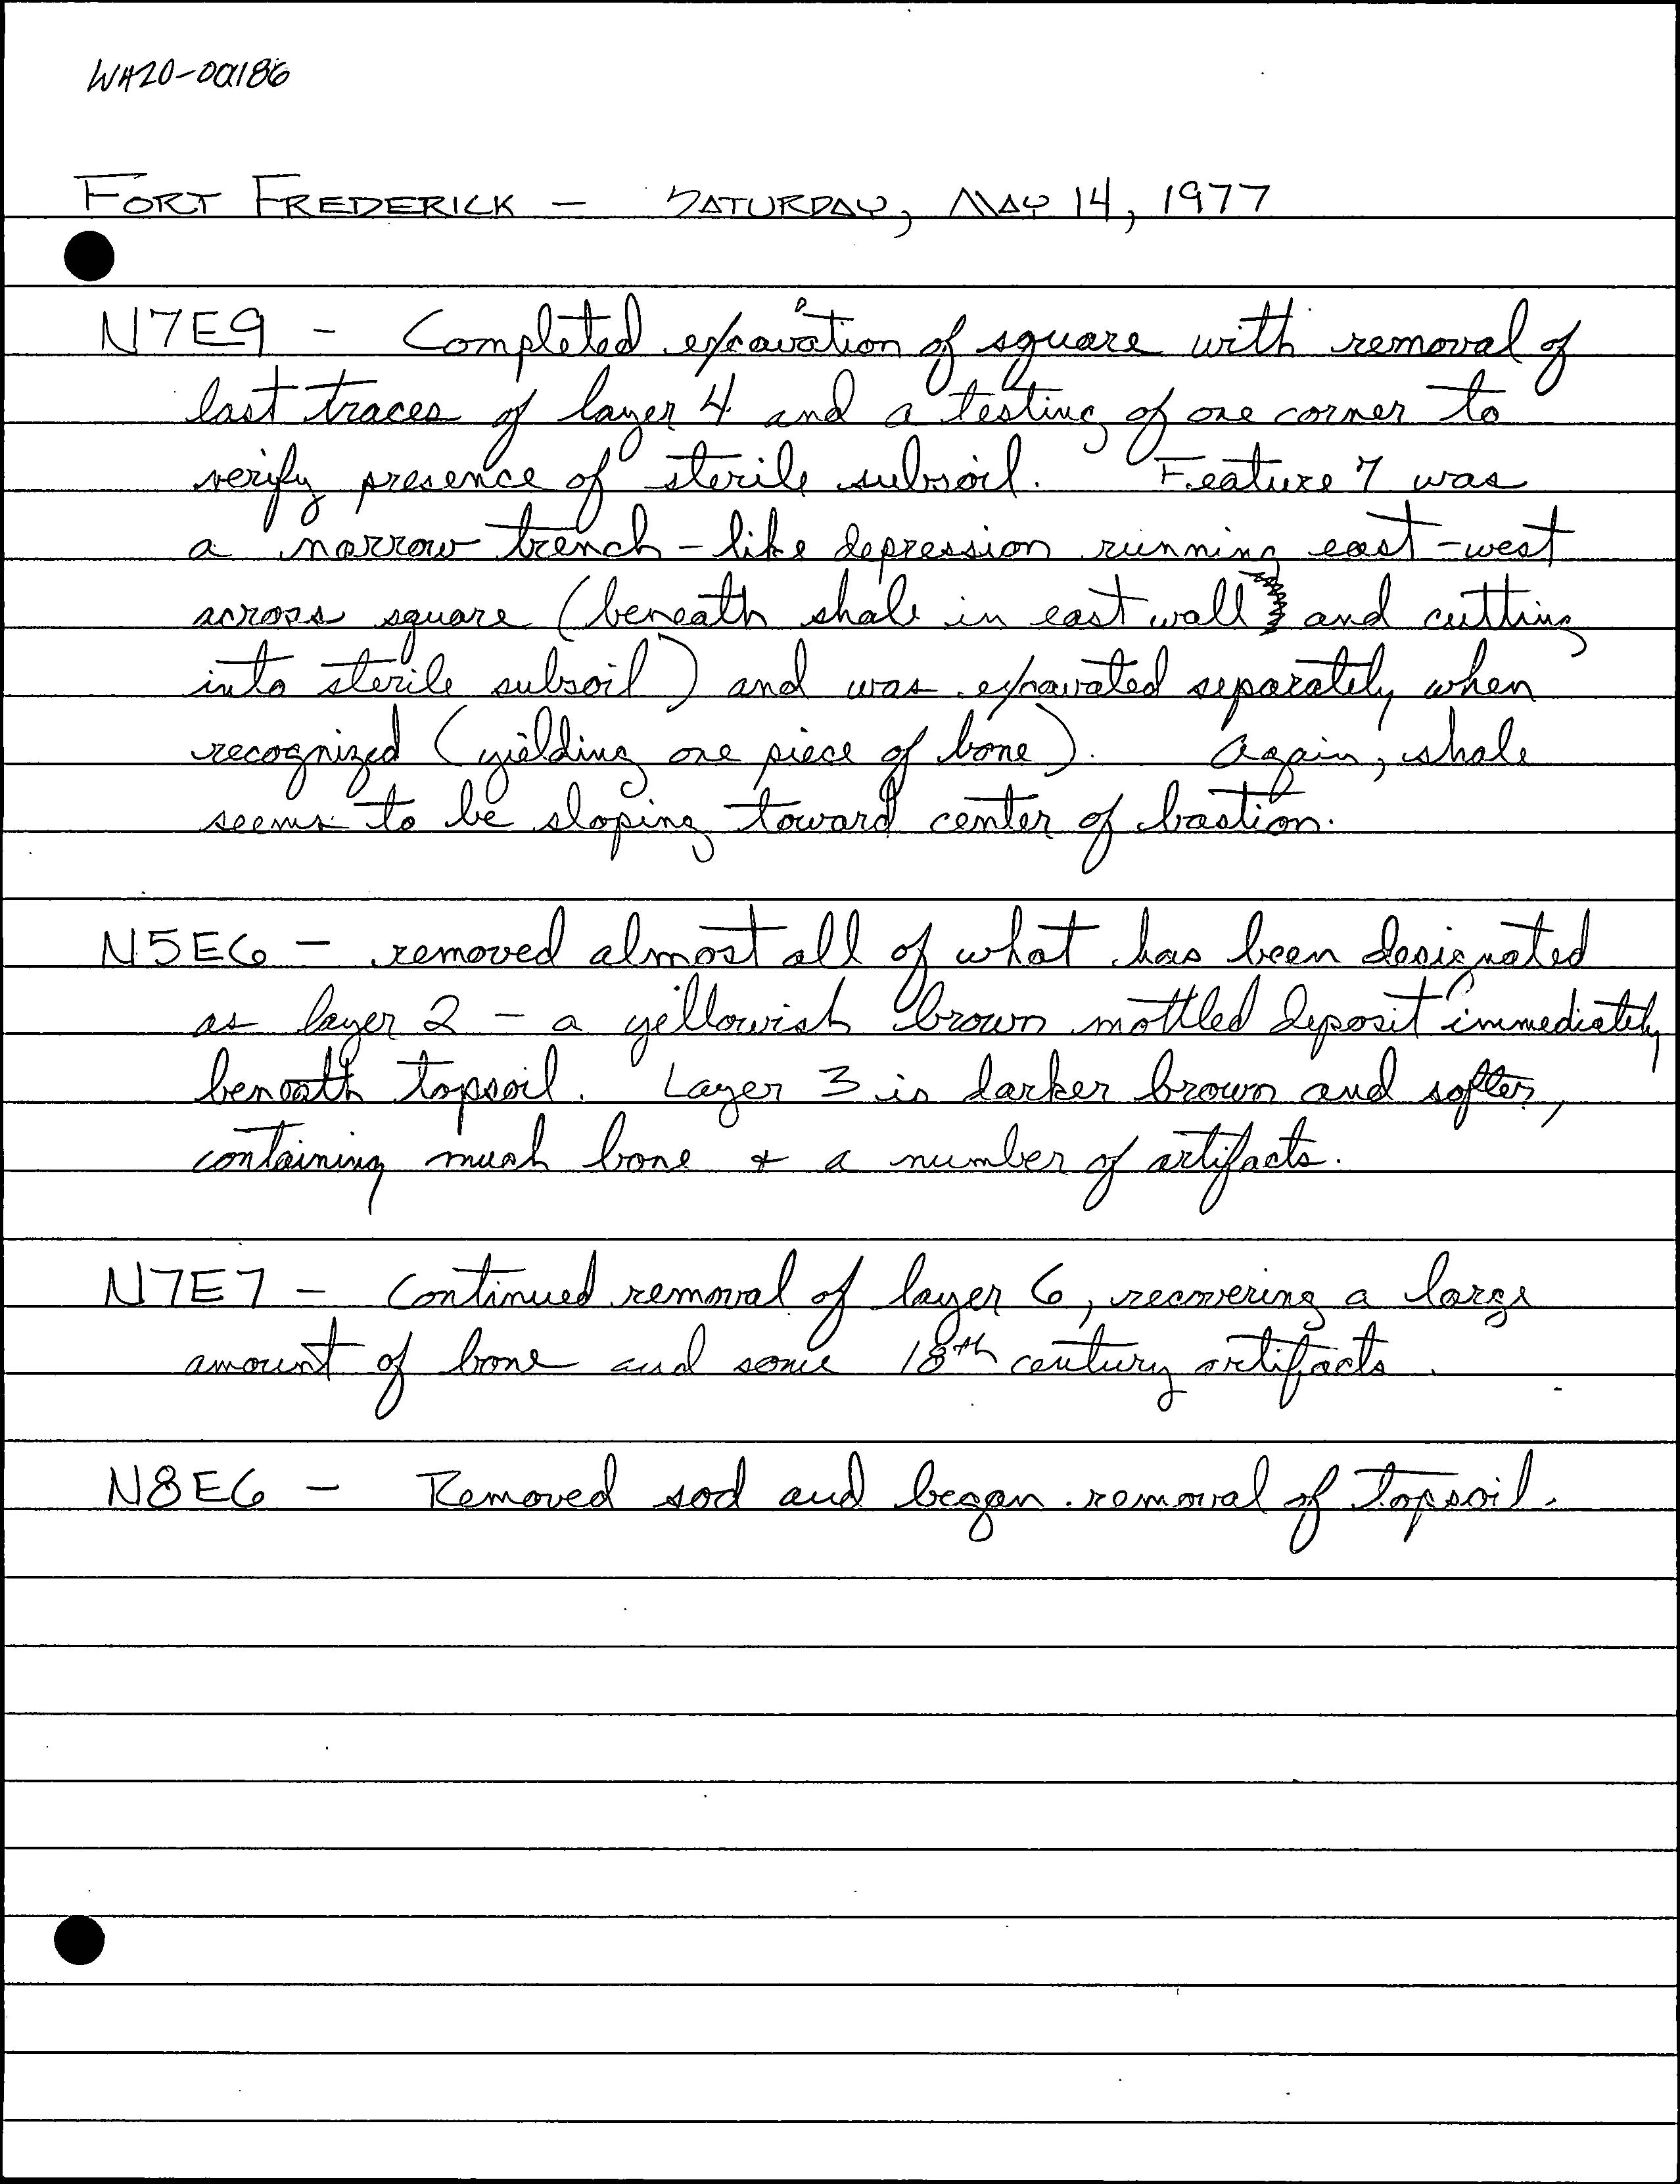 WA20-00186
FORT FREDERICK - SATURDAY, MAY 14, 1977
N7E9 - Completed excavation of square with removal of
last traces of layer 4 and a testing of one corner to
verify presence of sterile subsoil. Feature 7 was
a narrow trench-like depression running east-west
across square (beneath shale in east wall and cutting
into sterile subsoil) and was excavated separately when
recognized (yielding one piece of bone). Again, shale
seems to be sloping toward center of bastion.
N5E6 - removed almost all of what has been designated
as layer 2 - a yellowish brown mottled deposit immediately
beneath topsoil. Layer 3 is darker brown and softer,
containing much bone + a number of artifacts.
N7E7 - Continued removal of layer 6, recovering a large
amount of bone and some 18th century artifacts.
N8E6 - Removed sod and began removal of topsoil.